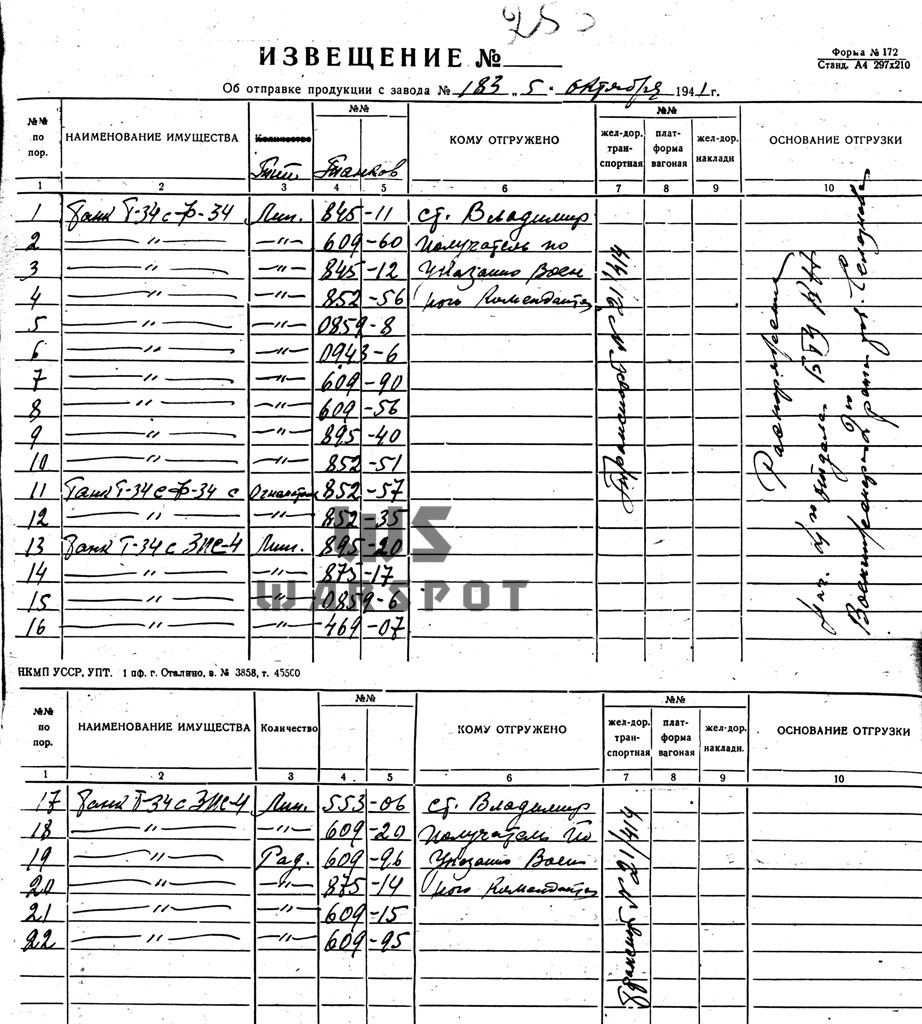 25
ИЗВЕЩЕНИЕ №
Форма № 172
Станд. А4 297х210
Об отправке продукции с завода № 183 „ 5 - октября 1941 г.
№№ по пор.
НАИМЕНОВАНИЕ ИМУЩЕСТВА
Количество
Тип
№№
Танков
КОМУ ОТГРУЖЕНО
№№
жел-дор. тран-спортная
плат-форма вагоная
жел-дор. накладн
ОСНОВАНИЕ ОТГРУЗКИ
1 2 3 4 5 6 7 8 9 10
1 Танк Т-34 с Ф-34 Лин. 845-11 ст. Владимир
2 —"— —"— 609-60 получатель по
3 —"— —"— 845-12 указанию Воен
4 —"— —"— 852-56 ного Коменданта
5 —"— —"— 0859-8
6 —"— —"— 0943-6
7 —"— —"— 609-90
8 —"— —"— 609-56
9 —"— —"— 895-40
10 —"— —"— 852-51
11 Танк Т-34 с Ф-34 с Огнеметом 852-57
12 —"— —"— 852-35
13 Танк Т-34 с ЗИС-4 Лин. 895-20
14 —"— —"— 875-17
15 —"— —"— 0859-6
16 —"— —"— 469-07
Транспорт № 21/414
Распоряжение
Нач. отдела БТУ
Военинженера ранга тов.
WS
WARSPOT
НКМП УССР, УПТ. 1 пф. г. Сталино, з. № 3858, т. 45500
№№ по пор.
НАИМЕНОВАНИЕ ИМУЩЕСТВА
Количество
№№
КОМУ ОТГРУЖЕНО
№№
жел-дор. тран-спортная
плат-форма вагоная
жел-дор. накладн.
ОСНОВАНИЕ ОТГРУЗКИ
1 2 3 4 5 6 7 8 9 10
17 Танк Т-34 с ЗИС-4 Лин. 553-06 ст. Владимир
18 —"— —"— 609-20 получатель по
19 —"— Рад. 609-96 указанию Воен
20 —"— —"— 875-14 ного Коменданта
21 —"— —"— 609-15
22 —"— —"— 609-95
Транспорт № 21/414